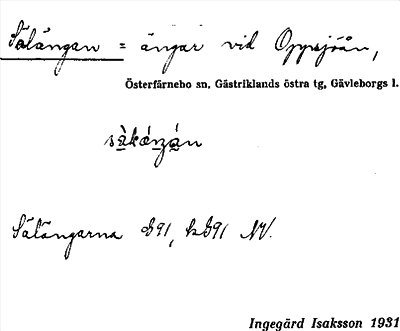 Sälängan = ängar vid Oppsjöån,
Österfärnebo sn, Gästriklands östra tg, Gävleborgs l.
Sälängarna d91, kd91 NV.
Ingegärd Isaksson 1931